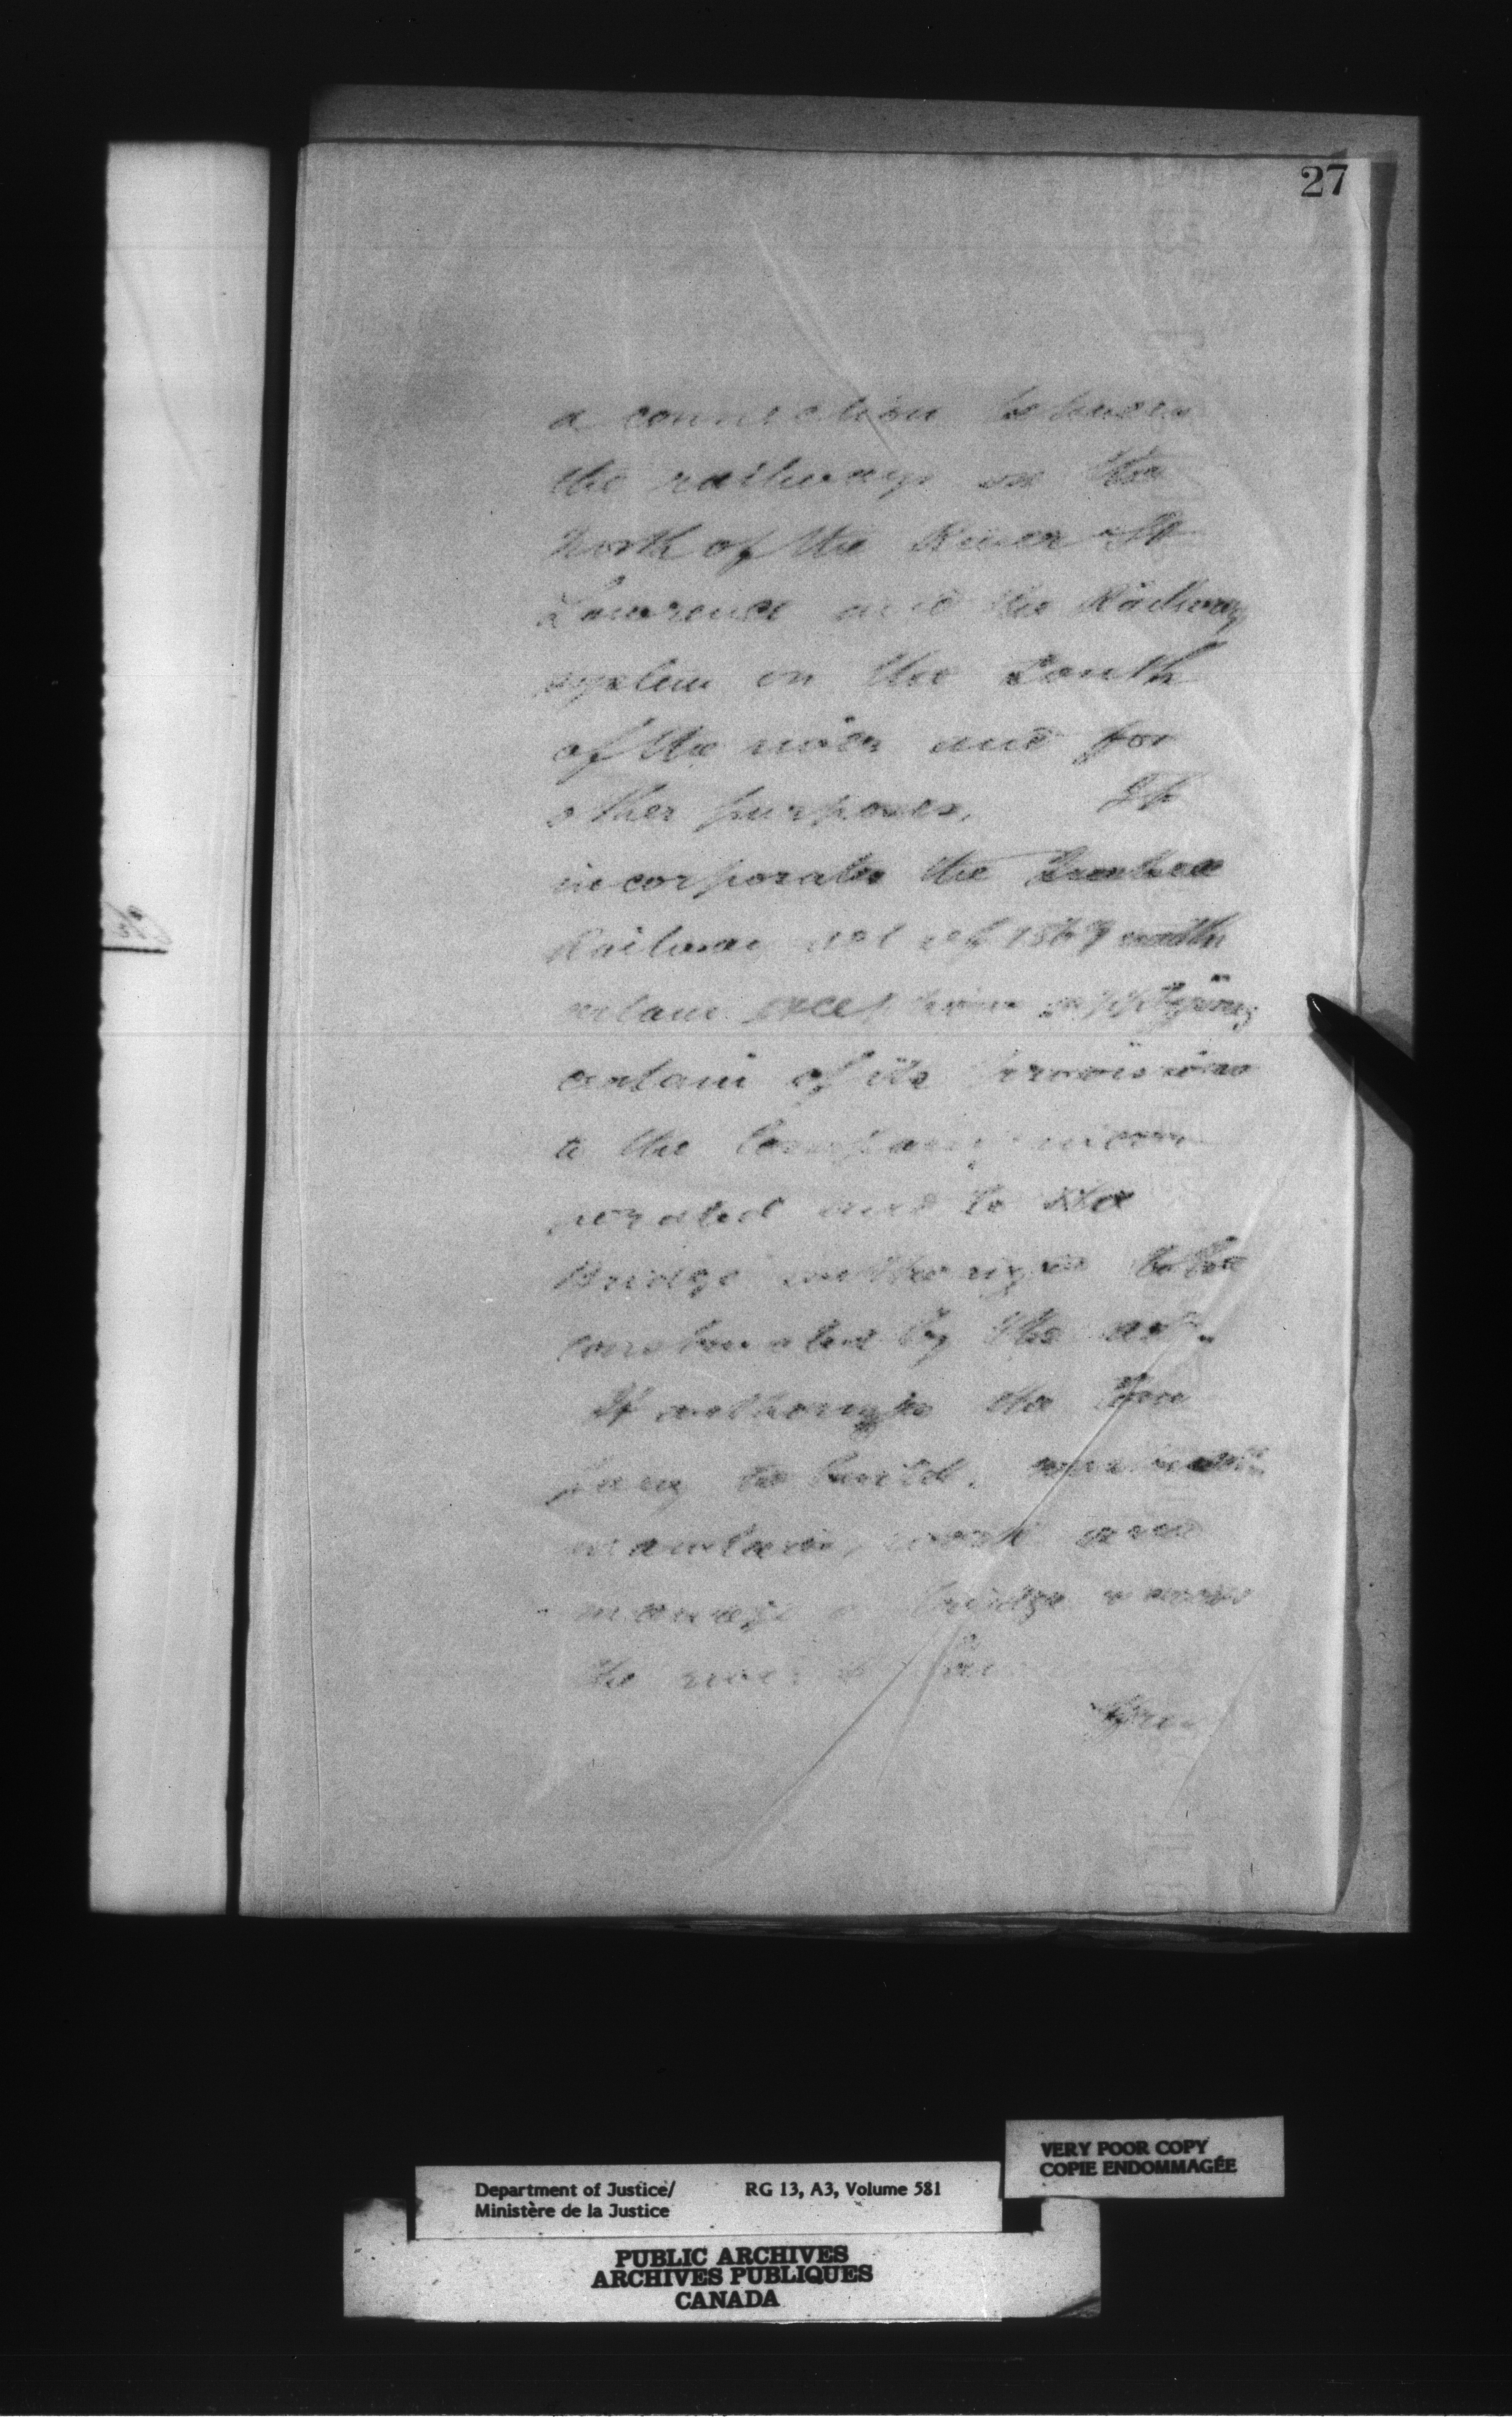 27
a connection between
the railways on the
North of the River St
Lawrence and the Railway
system on the South
of the river and for
other purposes. It
incorporates the Quebec
Railway act of 1869 with
certain exceptions applying
certain of its provisions
to the Company incor
porated and to the
Bridge authorized to be
constructed by the act.
It authorizes the Com
pany to build,
maintain, work and
manage a bridge across
the river
Department of Justice/ RG 13, A3, Volume 581
Ministère de la Justice
VERY POOR COPY
COPIE ENDOMMAGÉE
PUBLIC ARCHIVES
ARCHIVES PUBLIQUES
CANADA